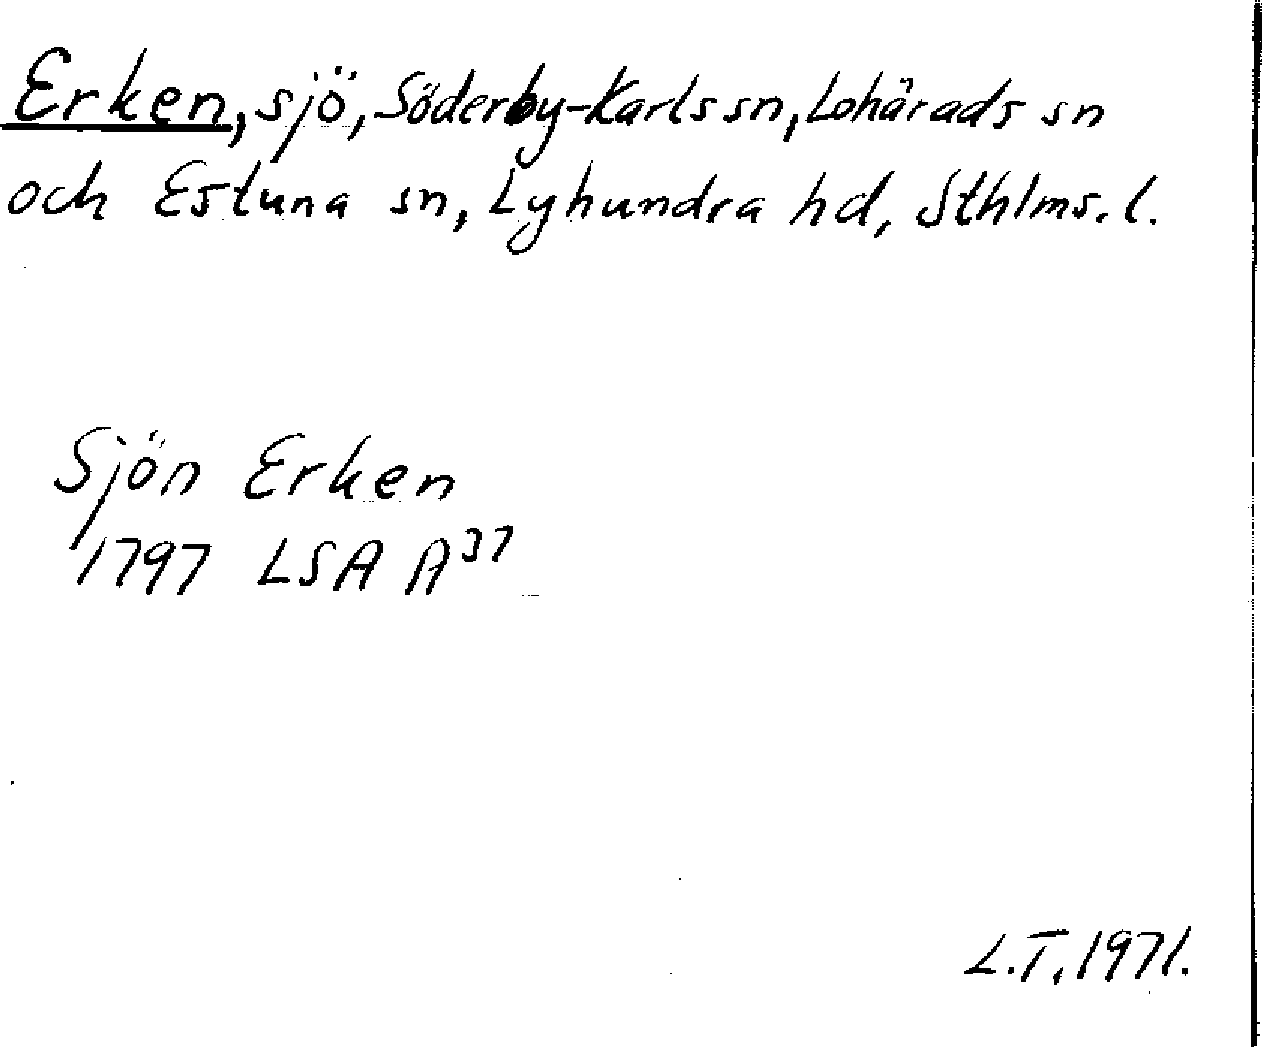 Erken, sjö, Söderby-Karls sn, Lohärads sn
och Estuna sn, Lyhundra hd, Sthlms. l.
Sjön Erken
1797 LSA A 37
L.T. 1971.